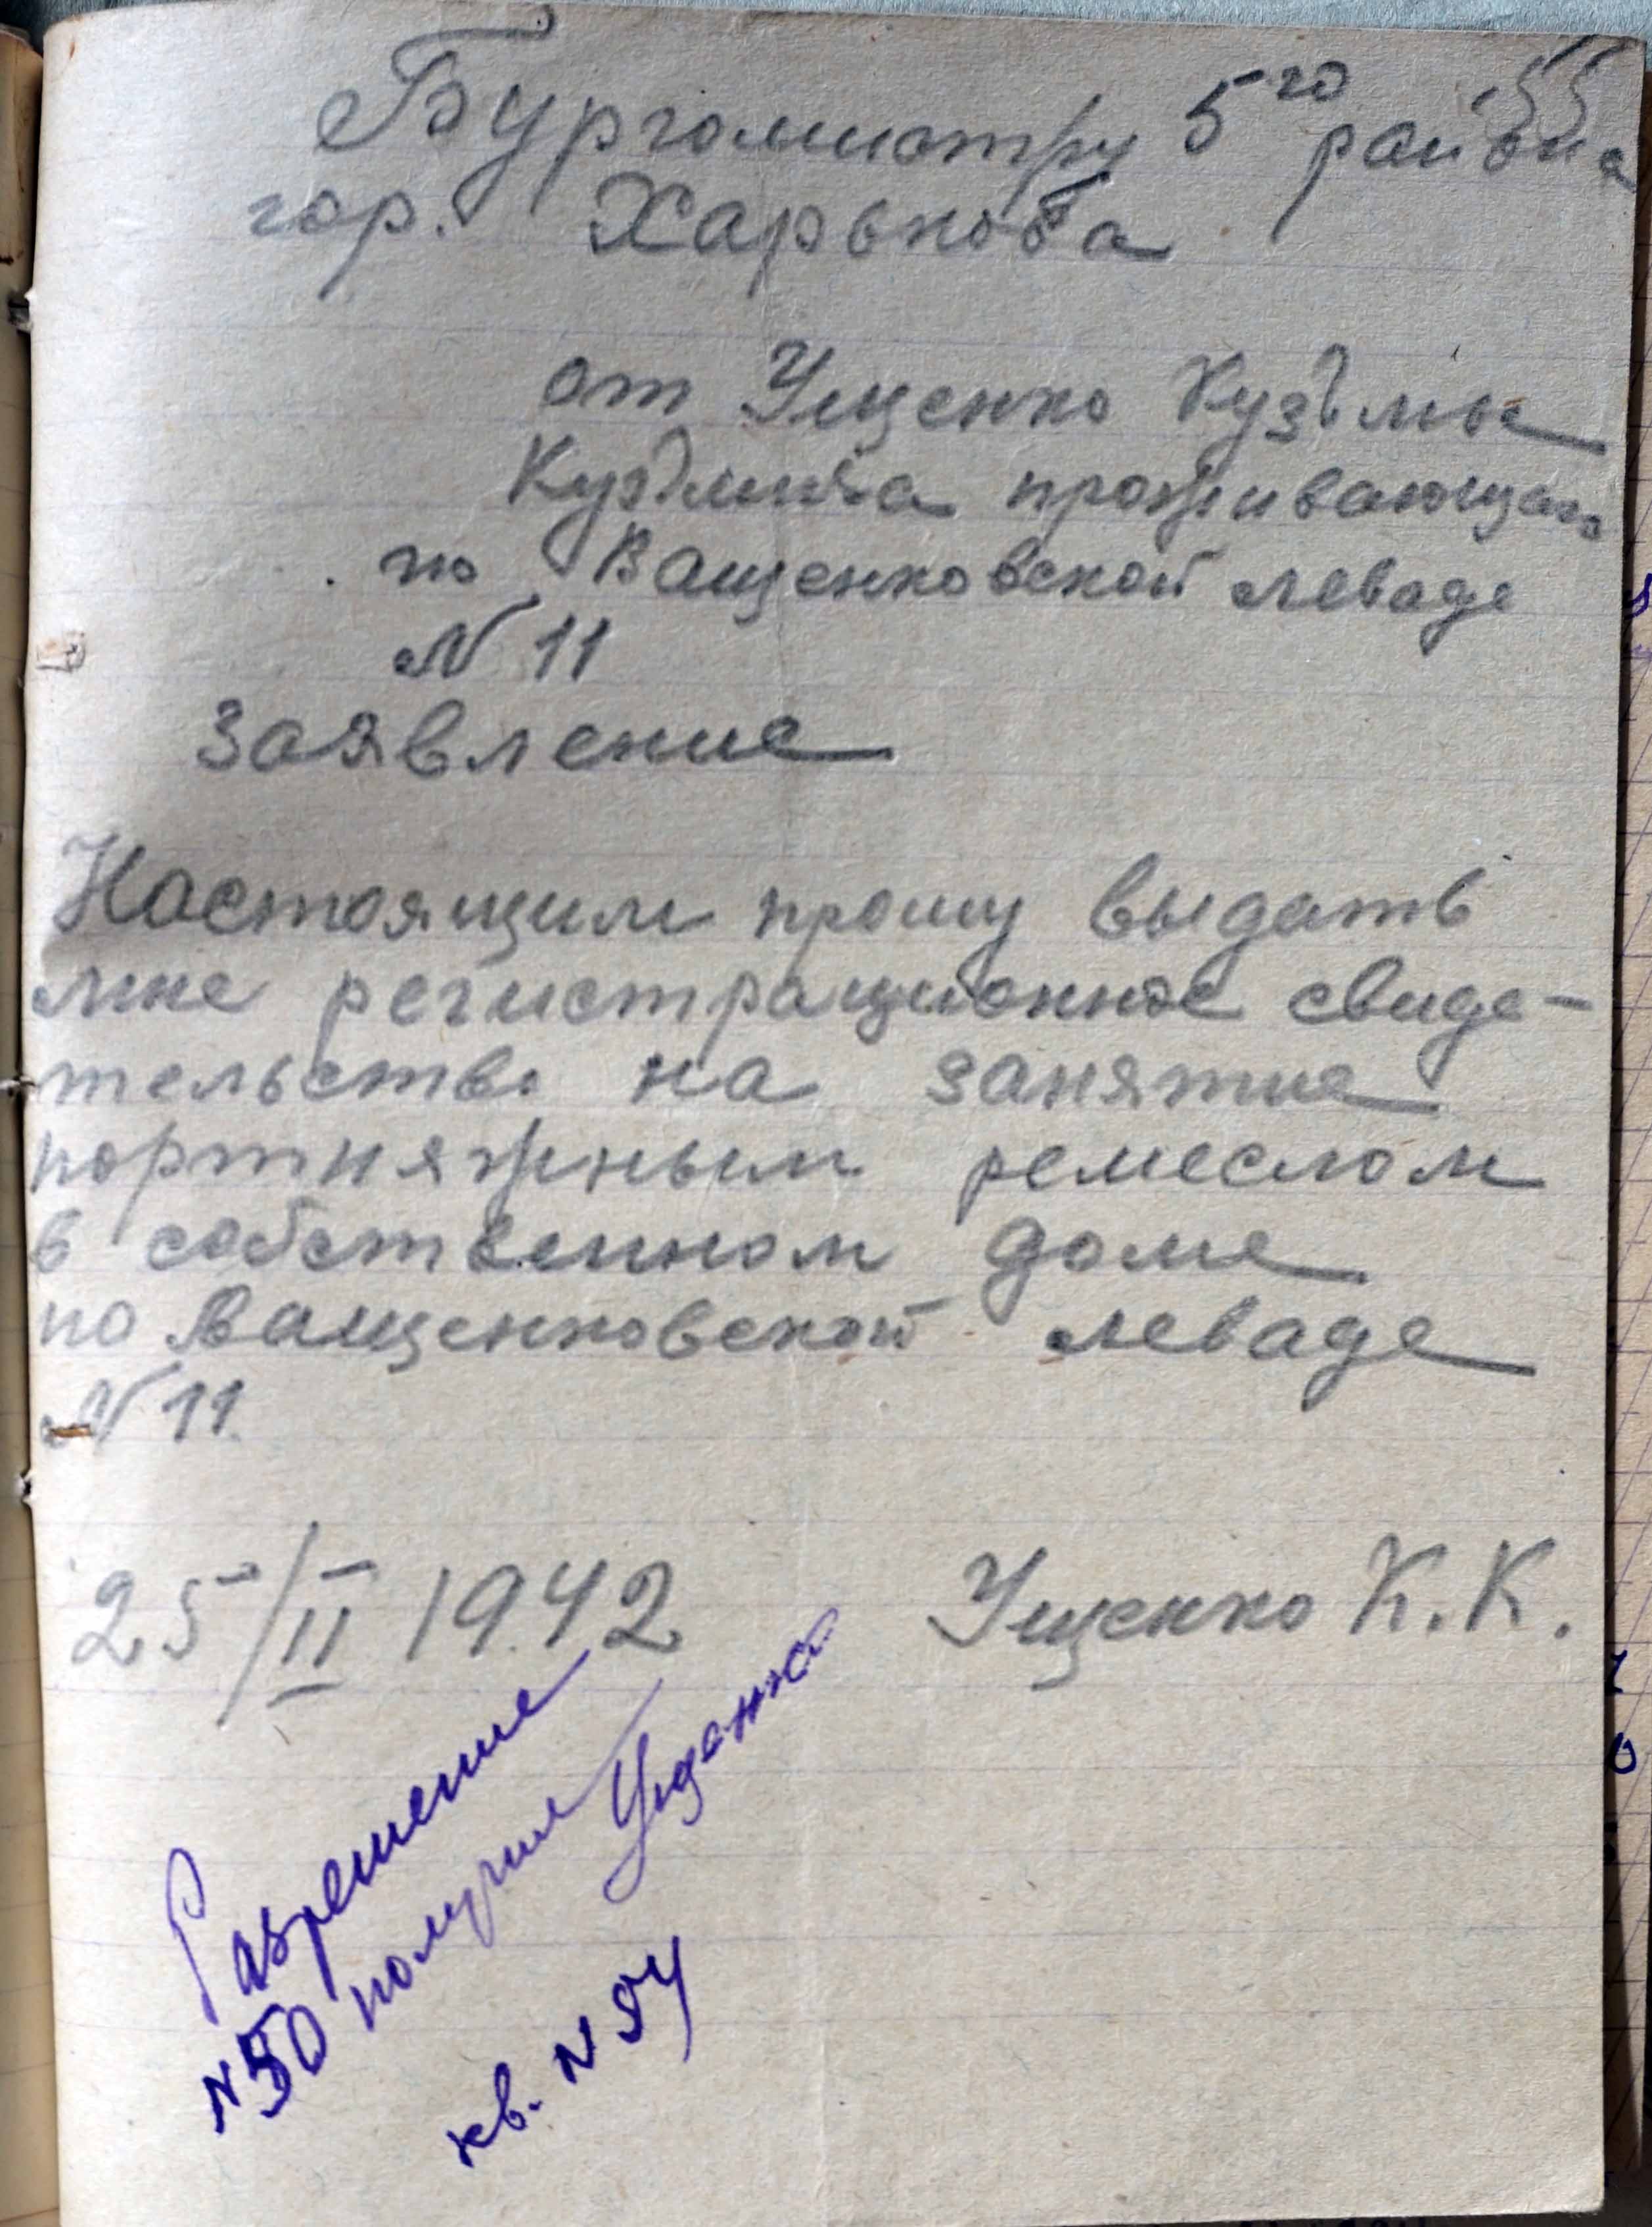 55
Бургомистру 5го района
гор. Харькова
от Ущенко Кузьмы
Кузьмича проживающего
по Ващенковской леваде
N 11
Заявление
Настоящим прошу выдать
мне регистрационное свиде-
тельство на занятие
портняжным ремеслом
в собственном доме
по Ващенковской леваде
N 11.
25/II 1942 Ущенко К.К.
Разрешение
N 50 получил Ущенко
кв. N 94